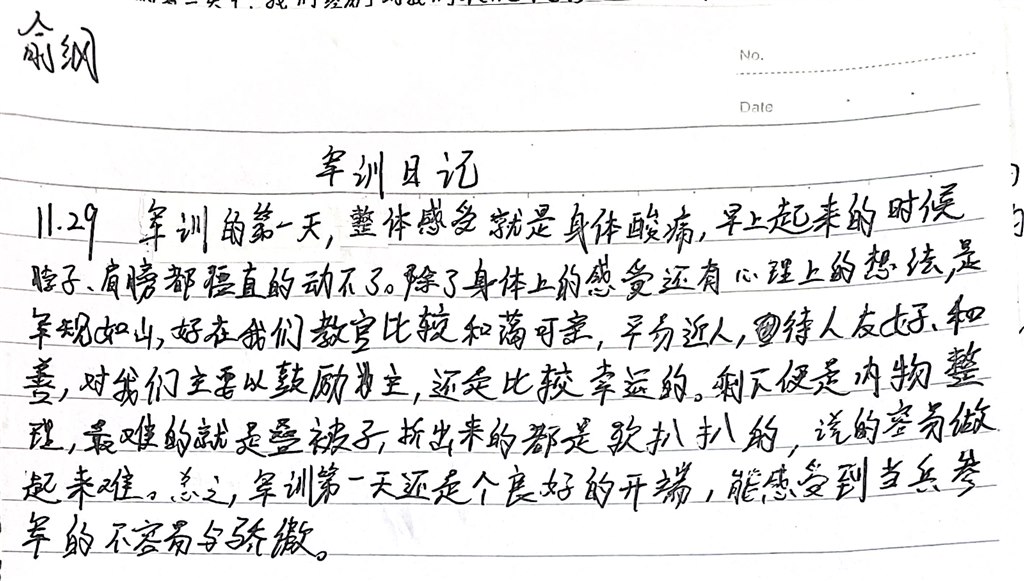 俞纲
No.
Date
军训日记
11.29 军训的第一天,整体感受就是身体酸痛,早上起来的时候
脖子、肩膀都僵直的动不了。除了身体上的感受还有心理上的想法,是
军规如山,好在我们教官比较和蔼可亲,平易近人,待人友好、和
善,对我们主要以鼓励为主,还是比较幸运的。剩下便是内物整
理,最难的就是叠被子,折出来的都是软扒扒的,说的容易做
起来难。总之,军训第一天还是个良好的开端,能感受到当兵参
军的不容易与骄傲。